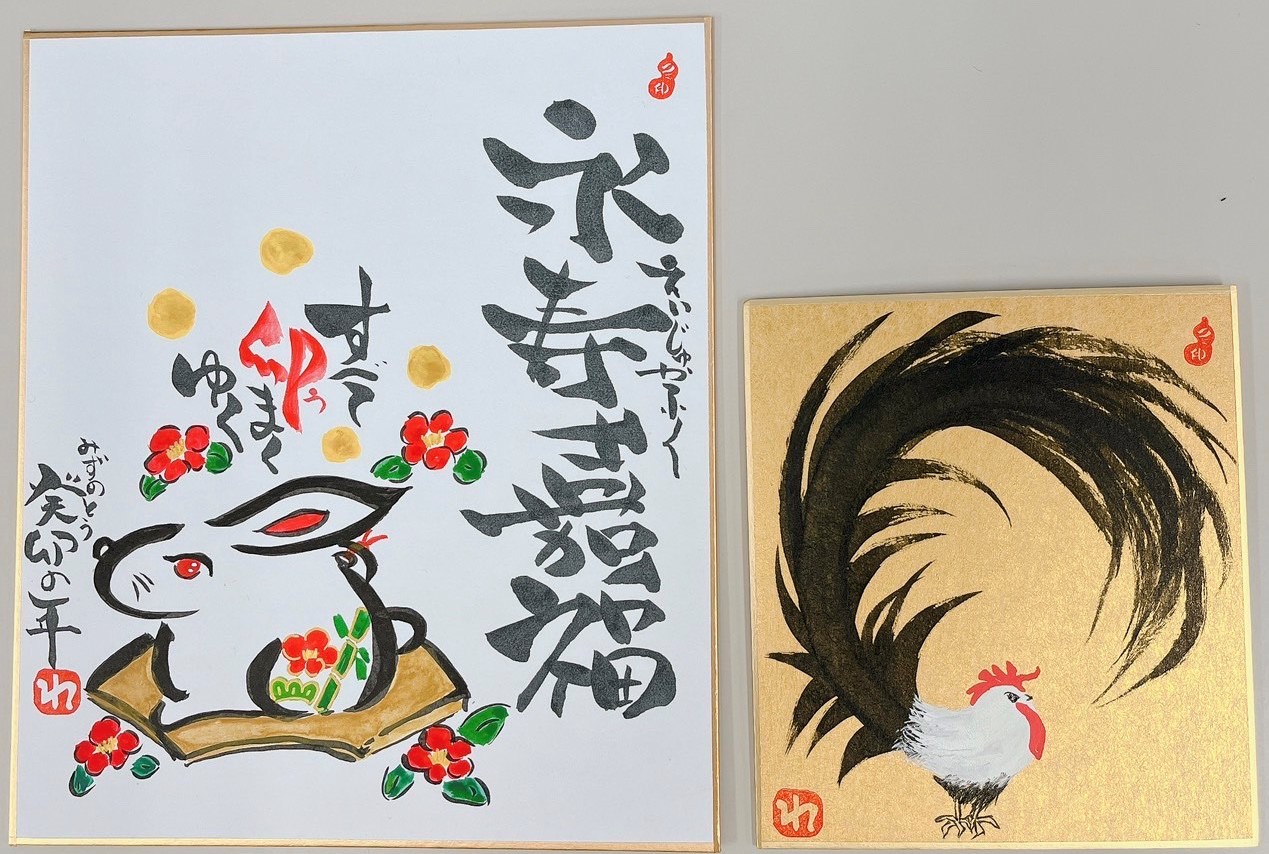 永寿嘉福
えいじゅかふく
すべて
卯まく
う
ゆく
みずのとう
癸卯の年